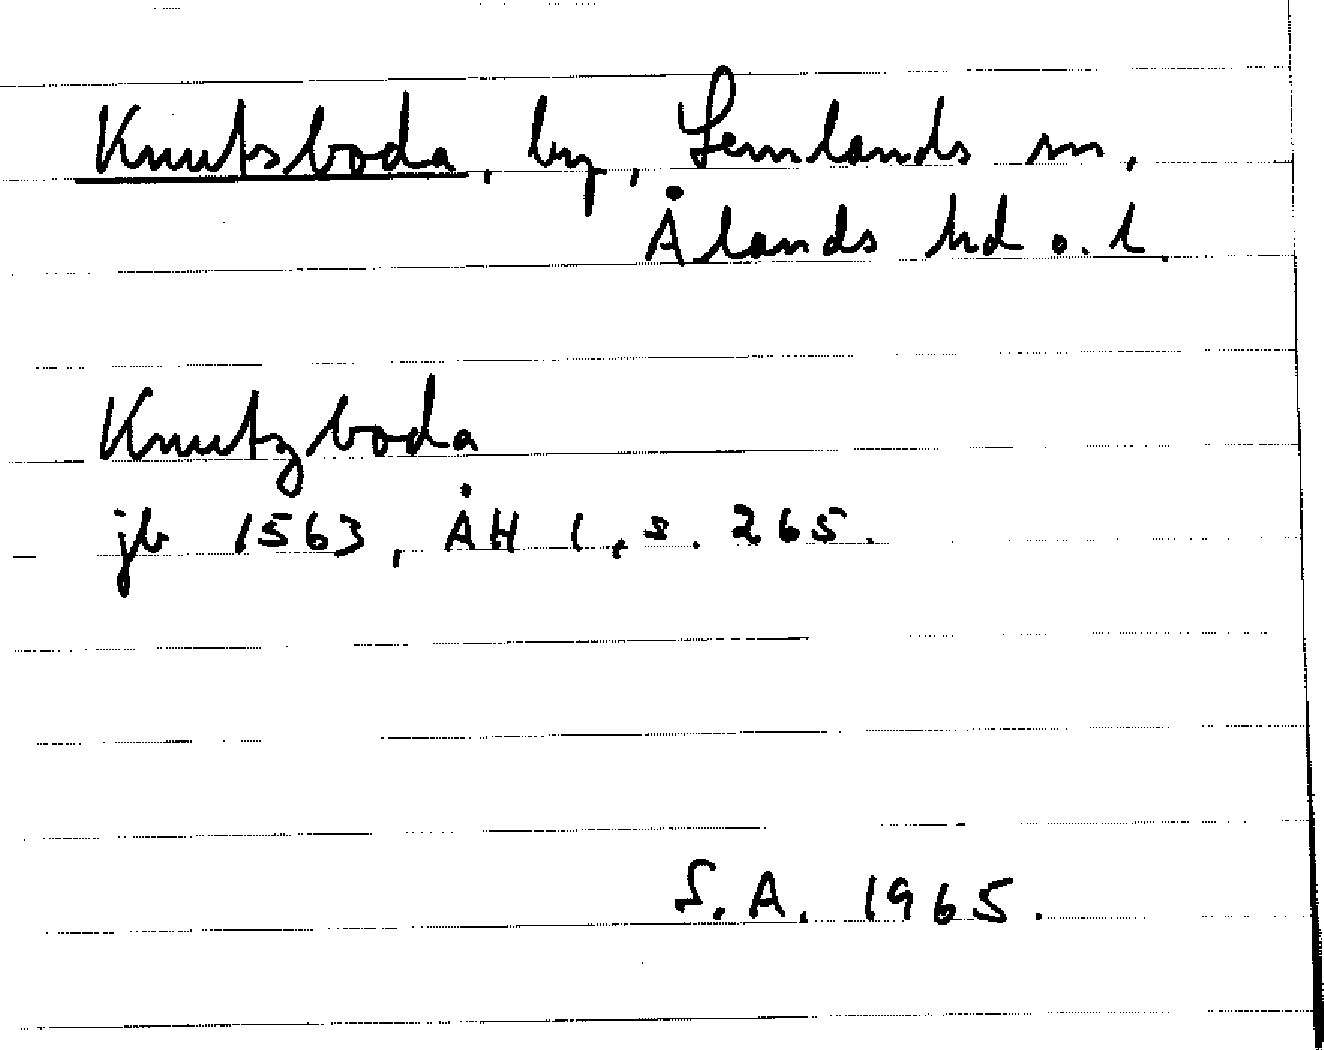 Knutsboda, by, Lemlands sn,
Ålands hd o. l.
Knutzboda
jb 1563, ÅH 1, s. 265.
S.A. 1965.